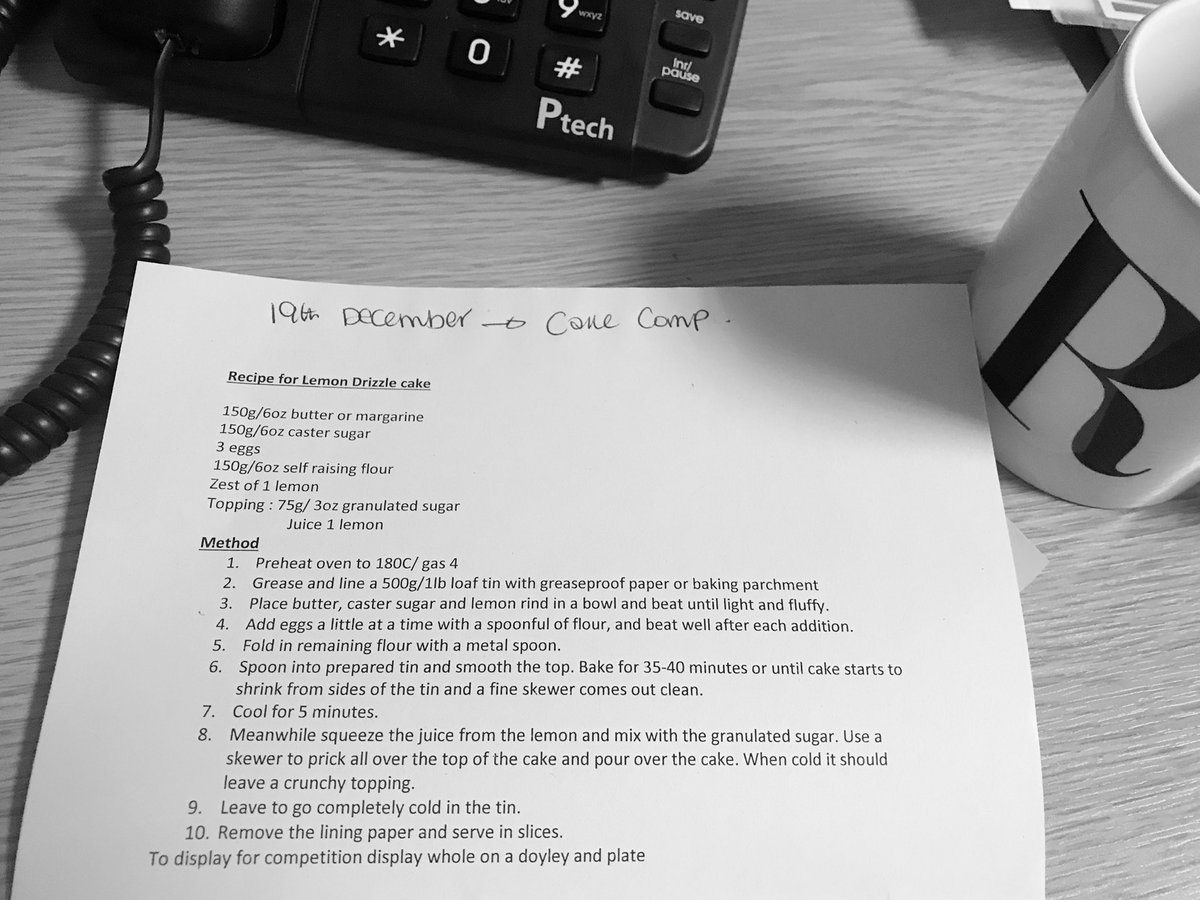 9 wxyz
save
* 0 #
lnr/
pause
Ptech
R
19th December → Cake Comp.
Recipe for Lemon Drizzle cake
150g/6oz butter or margarine
150g/6oz caster sugar
3 eggs
150g/6oz self raising flour
Zest of 1 lemon
Topping : 75g/ 3oz granulated sugar
Juice 1 lemon
Method
1. Preheat oven to 180C/ gas 4
2. Grease and line a 500g/1lb loaf tin with greaseproof paper or baking parchment
3. Place butter, caster sugar and lemon rind in a bowl and beat until light and fluffy.
4. Add eggs a little at a time with a spoonful of flour, and beat well after each addition.
5. Fold in remaining flour with a metal spoon.
6. Spoon into prepared tin and smooth the top. Bake for 35-40 minutes or until cake starts to
shrink from sides of the tin and a fine skewer comes out clean.
7. Cool for 5 minutes.
8. Meanwhile squeeze the juice from the lemon and mix with the granulated sugar. Use a
skewer to prick all over the top of the cake and pour over the cake. When cold it should
leave a crunchy topping.
9. Leave to go completely cold in the tin.
10. Remove the lining paper and serve in slices.
To display for competition display whole on a doyley and plate